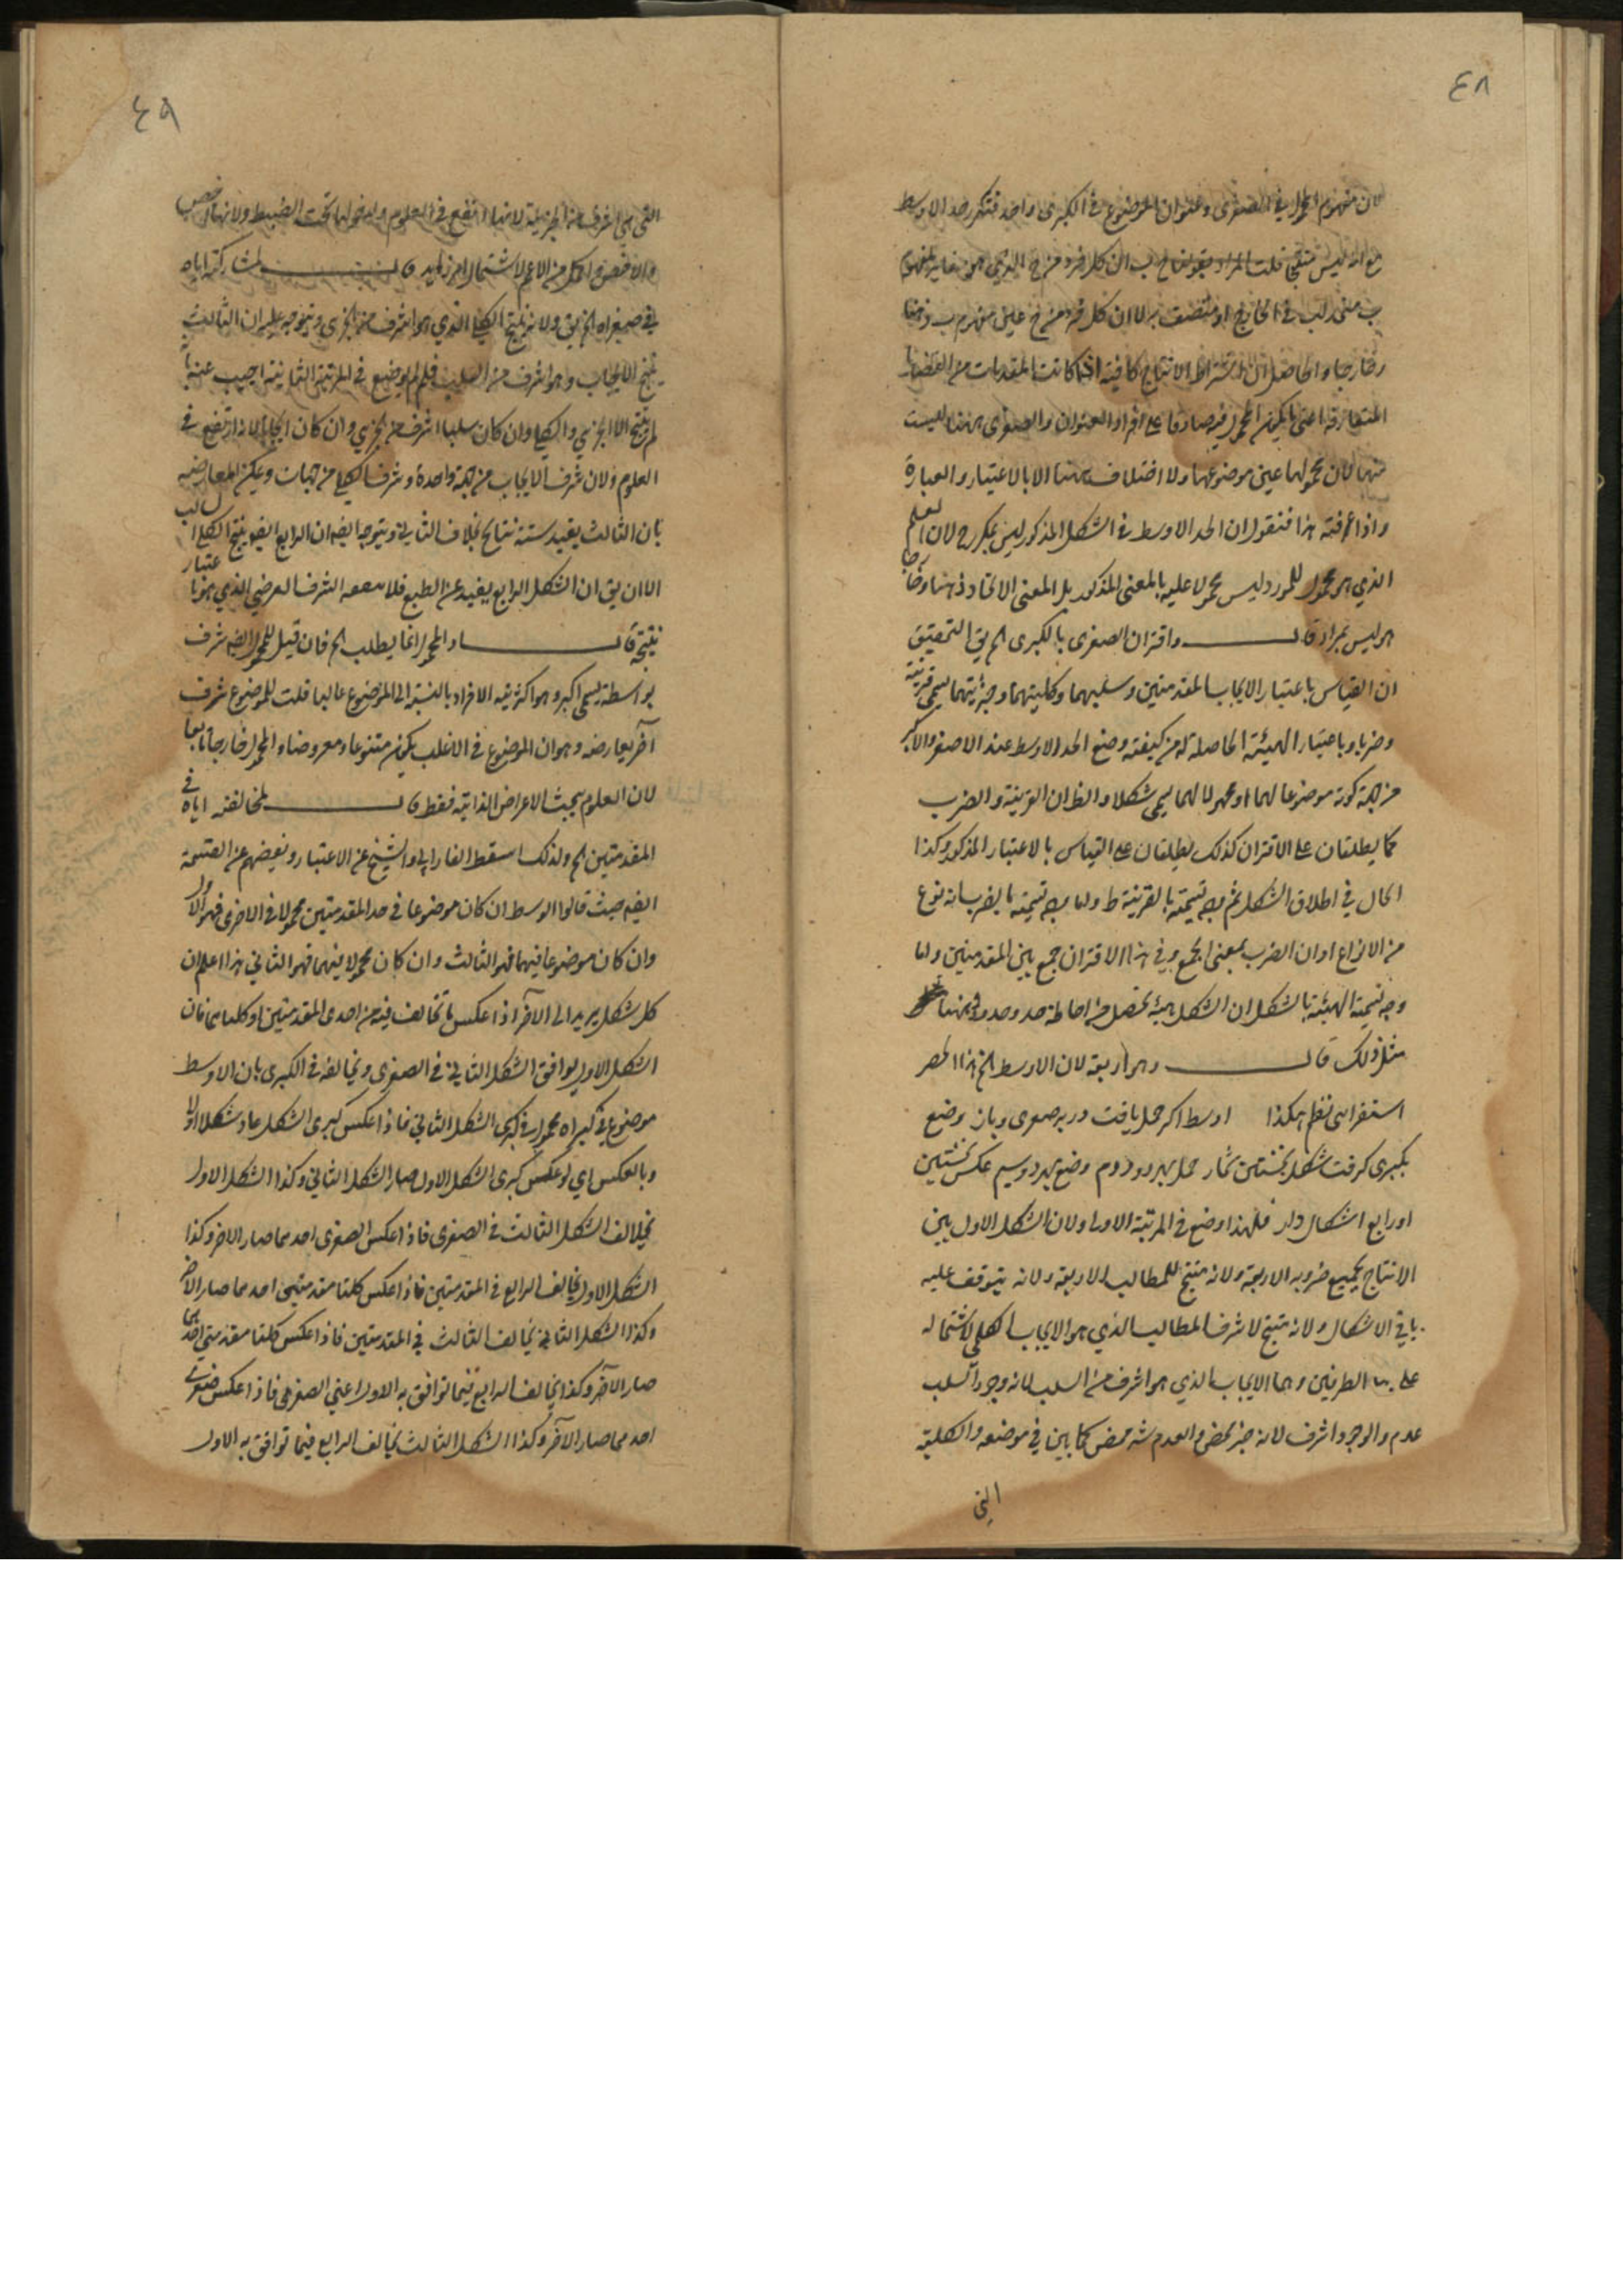 ٤٨
لان مفهوم المحمول في الصغرى وعنوان الموضوع في الكبرى واحد فتكرر حد الاوسط
مع انه ليس منتجا قلت المراد بقولنا ج ب ان كل فرد من ج الذي هو مغاير لمفهوم
ب متحد لب في الخارج او متصف به لا ان كل فرد من ج عين مفهوم ب ذهنا
وخارجا والحاصل ان الانتاج كافية اذا كانت المقدمات من القضايا
المتعارفة اعني ما يكون المحمول فيه صادقا على افراد العنوان والصغرى ههنا ليست
منها لان محمولها عين موضوعها ولا اختلاف ههنا الا بالاعتبار والعبارة
واذا عرفت هذا فنقول ان الحد الاوسط في الشكل المذكور ليس بمكرر لان العلم
الذي هو محمول للمورد ليس محمولا عليه بالمعنى المذكور بل المعنى الاتحاد ذهنا وخارجا
هو ليس بمراد قال واقتران الصغرى بالكبرى الخ في التحقيق
ان القياس باعتبار الايجاب المقدمتين وسلبهما وكليتهما وجزئيتهما يسمى قرينة
وضربا وباعتبار الهيئة الحاصلة له من كيفية وضع الحد الاوسط عند الاصغر والاكبر
من جهة كونه موضوعا لهما او محمولا لهما يسمى شكلا والظ ان القرينة والضرب
كما يطلقان على الاقتران كذلك يطلقان على القياس بالاعتبار المذكور وكذا
الحال في اطلاق الشكل ثم وجه تسميته بالقرينة ط واما وجه تسميته بالضرب انه نوع
من الانواع او ان الضرب بمعنى الجمع وفي هذا الاقتران جمع بين المقدمتين واما
وجه تسمية الهيئة بالشكل ان الشكل هيئة تحصل من احاطة حد وحدود وههنا
مثل ذلك قال وهو اربعة لان الاوسط الخ هذا الحصر
استقرائي نظم هكذا اوسط اكر حمل يافت در بر صغرى وباز وضع
بكبرى كرفت شكل نخستين شمار حمل بهر دو دوم وضع بهر دو سيم عكس نخستين
او رابع اشكال دار فلهذا وضع في المرتبة الاولى ولان الشكل الاول بين
الانتاج بجميع ضروبه الاربعة ولانه منتج للمطالب الاربعة ولانه يتوقف عليه
باقي الاشكال ولانه منتج لاشرف المطالب الذي هو الايجاب الكلي لاشتماله
على الطرفين وهما الايجاب الذي هو اشرف من السلب لانه وجود السلب
عدم والوجود اشرف لانه خير محض والعدم شر محض كما بين في موضعه والكلية
التي
٤٩
التي هي اشرف من الجزئية لانها انفع في العلوم ولدخولها تحت الضبط ولانها اخص
والاخص اكمل من الاعم لاشتماله امر زايد قال لمشاركته اياه
في صغراه الخ ولانه ينتج الكلي الذي هو اشرف من الجزئي ويتوجه عليه ان الثالث
ينتج الايجاب وهو اشرف من السلب فلم لم يوضع في المرتبة الثانية اجيب عنه بانه
لم ينتج الا الجزئي والكلي وان كان سلبا اشرف من الجزئي وان كان ايجابا لانه انفع في
العلوم ولان شرف الايجاب من جهة واحدة وشرف الكلي من جهات ويمكن المعارضة
بان الثالث يفيد ستة نتائج بخلاف الثاني ويتوجه ايضا ان الرابع ايضا ينتج الكلي السالب
الا ان يق ان الشكل الرابع بعيد عن الطبع فلا الشرف العرضي الذي هو باعتبار
نتيجة قال والمحمول انما يطلب الخ فان قيل للمحمول ايضا شرف
بواسطة يسمى اكبر وهو اكثرية الافراد بالنسبة الى الموضوع غالبا قلت للموضوع شرف
آخر يعارضه وهو ان الموضوع في الاغلب يكون متنوعا ومعروضا والمحمول خارجا تابعا
لان العلوم يبحث الاعراض الذاتية فقط قال لمخالفته اياه في
المقدمتين الخ ولذلك اسقط الفارابي والشيخ عن الاعتبار وبعضهم عن القسمة
ايضا حيث قالوا الوسط ان كان موضوعا في حد المقدمتين محمولا في الاخرى فهو الاول
وان كان موضوعا فيهما فهو الثالث وان كان محمولا فيهما فهو الثاني هذا اعلم ان
كل شكل يريد الى الآخر اذا عكس ما تخالف فيه من احدى المقدمتين او كلتاهما فان
الشكل الاول يوافق الشكل الثاني في الصغرى ويخالفه في الكبرى بان الاوسط
موضوع في كبراه محمول في كبرى الشكل الثاني فاذا عكس كبرى الشكل عاد شكلا اولا
وبالعكس اي لو عكس كبرى الشكل الاول صار الشكل الثاني وكذا الشكل الاول
يخالف الشكل الثالث في الصغرى فاذا عكس الصغرى احدهما صار الاخر وكذا
الشكل الاول يخالف الرابع في المقدمتين فاذا عكس كلتا مقدمتي احدهما صار الاخر
وكذا الشكل الثاني يخالف الثالث في المقدمتين فاذا عكس كلتا مقدمتي احدهما
صار الآخر وكذا يخالف الرابع فيما توافق به الاول اعني الصغرى فاذا عكس صغرى
احدهما صار الآخر وكذا الشكل الثالث يخالف الرابع فيما توافق به الاول